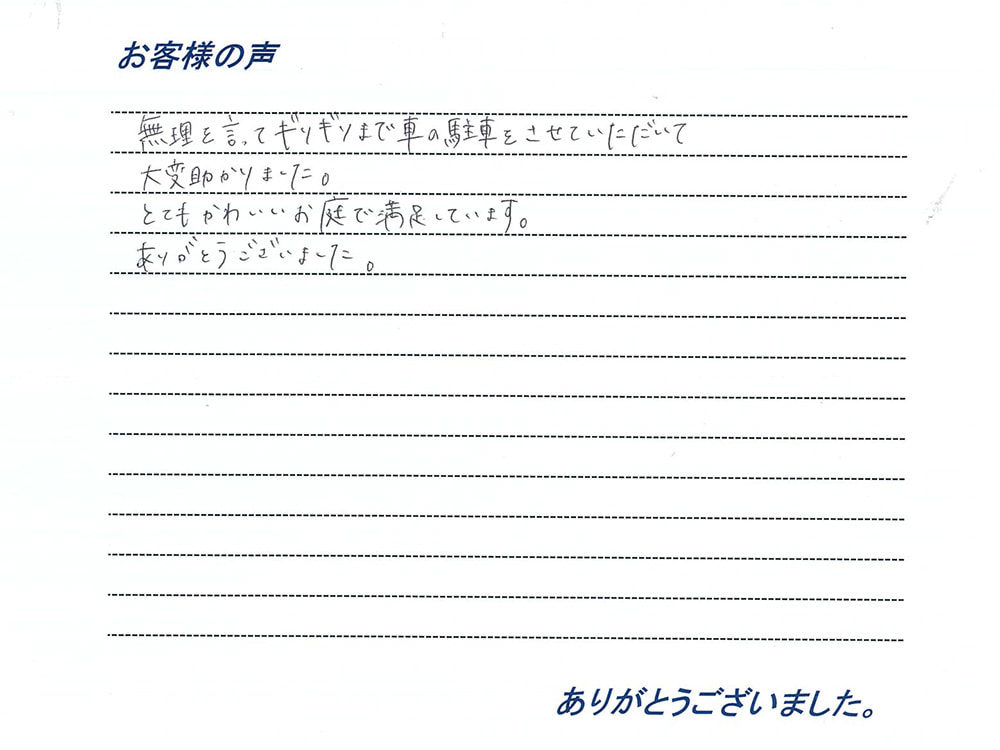 お客様の声
無理を言ってギリギリまで車の駐車をさせていただいて
大変助かりました。
とてもかわいいお庭で満足しています。
ありがとうございました。
ありがとうございました。